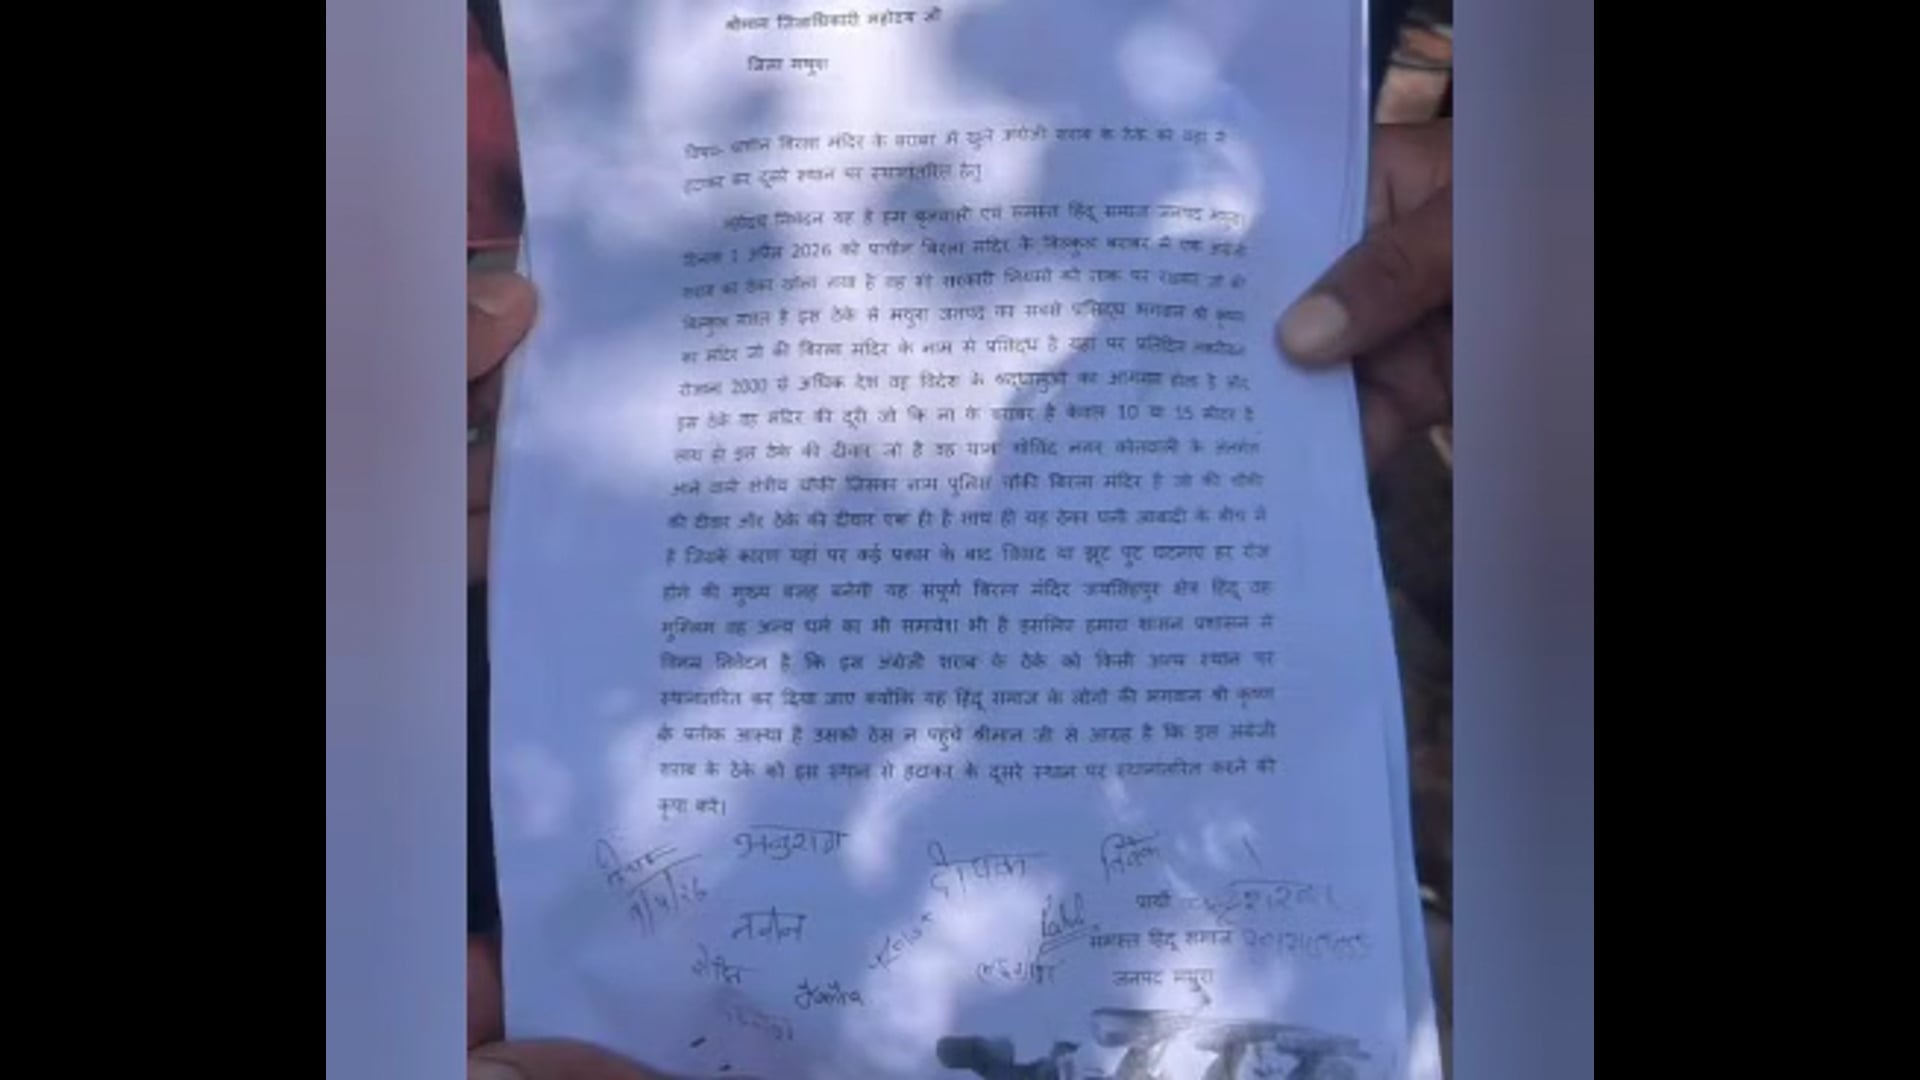 श्रीमान जिलाधिकारी महोदय जी
जिला मथुरा
विषय- प्राचीन बिरला मंदिर के बराबर में खुले अंग्रेजी शराब के ठेके को वहां से
हटाकर कर दूसरे स्थान पर स्थानांतरित हेतु
महोदय निवेदन यह है हम बृजवासी एवं समस्त हिंदू समाज जनपद मथुरा
दिनांक 1 अप्रैल 2026 को प्राचीन बिरला मंदिर के बिल्कुल बराबर में एक अंग्रेजी
शराब का ठेका खोला गया है वह भी सरकारी नियमों को ताक पर रखकर जो की
बिल्कुल गलत है इस ठेके से मथुरा जनपद का सबसे प्रसिद्ध भगवान श्री कृष्ण
का मंदिर जो की बिरला मंदिर के नाम से प्रसिद्ध है यहां पर प्रतिदिन
रोजाना 2000 से अधिक देश वह विदेश के श्रद्धालुओं का आगमन होता है और
इस ठेके वह मंदिर की दूरी जो कि ना के बराबर है केवल 10 या 15 मीटर है
साथ ही इस ठेके की दीवार जो है वह थाना गोविंद नगर कोतवाली के अंतर्गत
आने वाली क्षेत्रीय चौकी जिसका नाम पुलिस चौकी बिरला मंदिर है जो की चौकी
की दीवार और ठेके की दीवार एक ही है साथ ही यह ठेका घनी आबादी के बीच में
है जिसके कारण यहां पर कई प्रकार के बाद विवाद या झूट पुट घटनाएं हर रोज
होने की मुख्य वजह बनेगी यह संपूर्ण बिरला मंदिर जयसिंहपुर क्षेत्र हिंदू वह
मुस्लिम वह अन्य धर्म का भी समावेश भी है इसलिए हमारा शासन प्रशासन से
विनम्र निवेदन है कि इस अंग्रेजी शराब के ठेके को किसी अन्य स्थान पर
स्थानांतरित कर दिया जाए क्योंकि यह हिंदू समाज के लोगों की भगवान श्री कृष्ण
के प्रतीक आस्था है उसको ठेस न पहुंचे श्रीमान जी से आग्रह है कि इस अंग्रेजी
शराब के ठेके को इस स्थान से हटाकर के दूसरे स्थान पर स्थानांतरित करने की
कृपा करें।
अनुराग
दीपक
विवेक
प्रार्थी
नवीन
समस्त हिंदू समाज
जनपद मथुरा